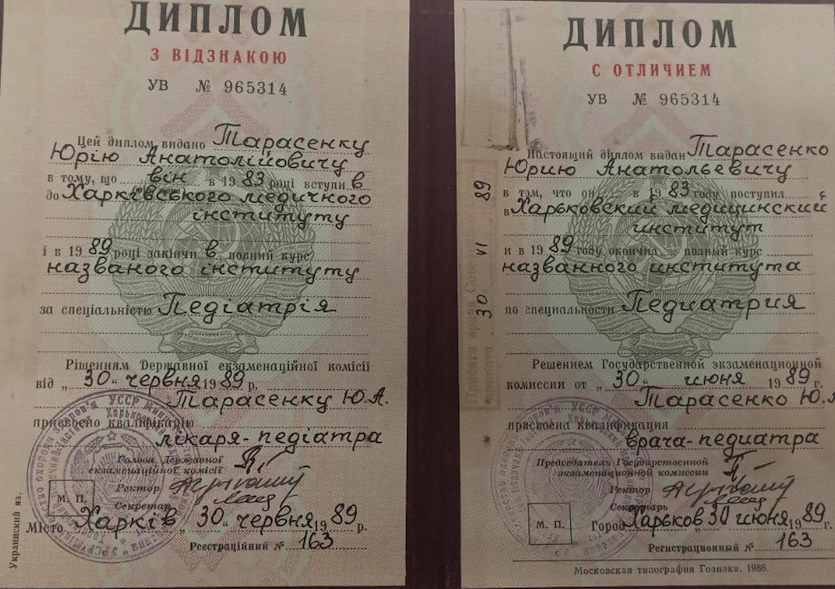 ДИПЛОМ
З ВІДЗНАКОЮ
УВ № 965314
Цей диплом видано Тарасенку
Юрію Анатолійовичу
в тому, що він в 1983 році вступив
до Харківського медичного
інституту
і в 1989 році закінчив повний курс
названого інституту
за спеціальністю Педіатрія
Рішенням Державної екзаменаційної комісії
від „30" червня 1989 р.
Тарасенку Ю.А.
присвоєно кваліфікацію
лікаря-педіатра
Голова Державної
екзаменаційної комісії
Ректор
Секретар
М. П.
Місто Харків „30" червня 1989 р.
Реєстраційний № 163
Украинский яз.
ДИПЛОМ
С ОТЛИЧИЕМ
УВ № 965314
Настоящий диплом выдан Тарасенко
Юрию Анатольевичу
в том, что он в 1983 году поступил
в Харьковский медицинский
институт
и в 1989 году окончил полный курс
названного института
по специальности Педиатрия
Решением Государственной экзаменационной
комиссии от „30" июня 1989 г.
Тарасенко Ю.
присвоена квалификация
врача-педиатра
Председатель Государственной
экзаменационной комиссии
Ректор
Секретарь
М. П.
Город Харьков 30 июня 1989 г.
Регистрационный № 163
Московская типография Гознака. 1988.
30 VI 89